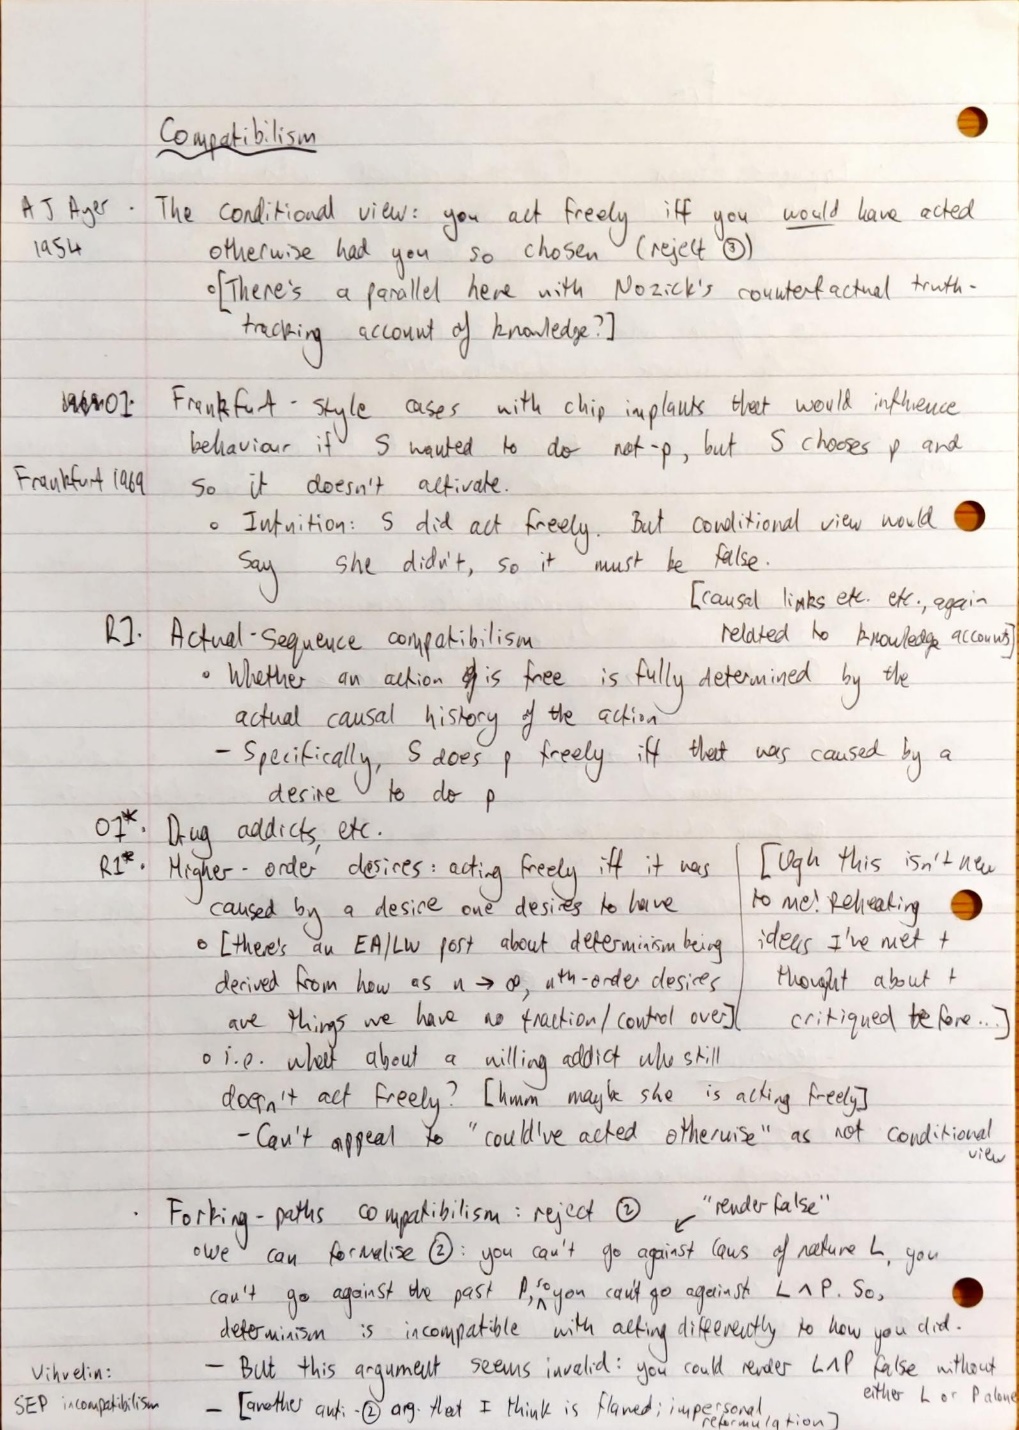 Compatibilism
A J Ayer · The conditional view: you act freely iff you would have acted
1954 otherwise had you so chosen (reject ③)
[There's a parallel here with Nozick's counterfactual truth-
tracking account of knowledge?]
O]. Frankfurt-style cases with chip implants that would influence
behaviour if S wanted to do not-p, but S chooses p and
Frankfurt 1969 so it doesn't activate.
Intuition: S did act freely. But conditional view would
say she didn't, so it must be false.
[causal links etc. etc., again
related to knowledge accounts]
R]. Actual-sequence compatibilism
Whether an action is free is fully determined by the
actual causal history of the action
- Specifically, S does p freely iff that was caused by a
desire to do p
O]*. Drug addicts, etc.
R]*. Higher-order desires: acting freely iff it was
caused by a desire one desires to have
[there's an EA/LW post about determinism being
derived from how as n → ∞, nth-order desires
are things we have no traction/control over]
[Ugh this isn't new
to me! Reheating
ideas I've met +
thought about +
critiqued before...]
i.e. what about a willing addict who still
doesn't act freely? [hmm maybe she is acting freely]
- Can't appeal to "could've acted otherwise" as not conditional
view
· Forking-paths compatibilism: reject ② "render false"
We can formalise ②: you can't go against laws of nature L, you
can't go against the past P, so you can't go against L ∧ P. So,
determinism is incompatible with acting differently to how you did.
Vihvelin: - But this argument seems invalid: you could render L∧P false without
either L or P alone
SEP incompatibilism - [another anti-② arg. that I think is flawed; impersonal
reformulation]